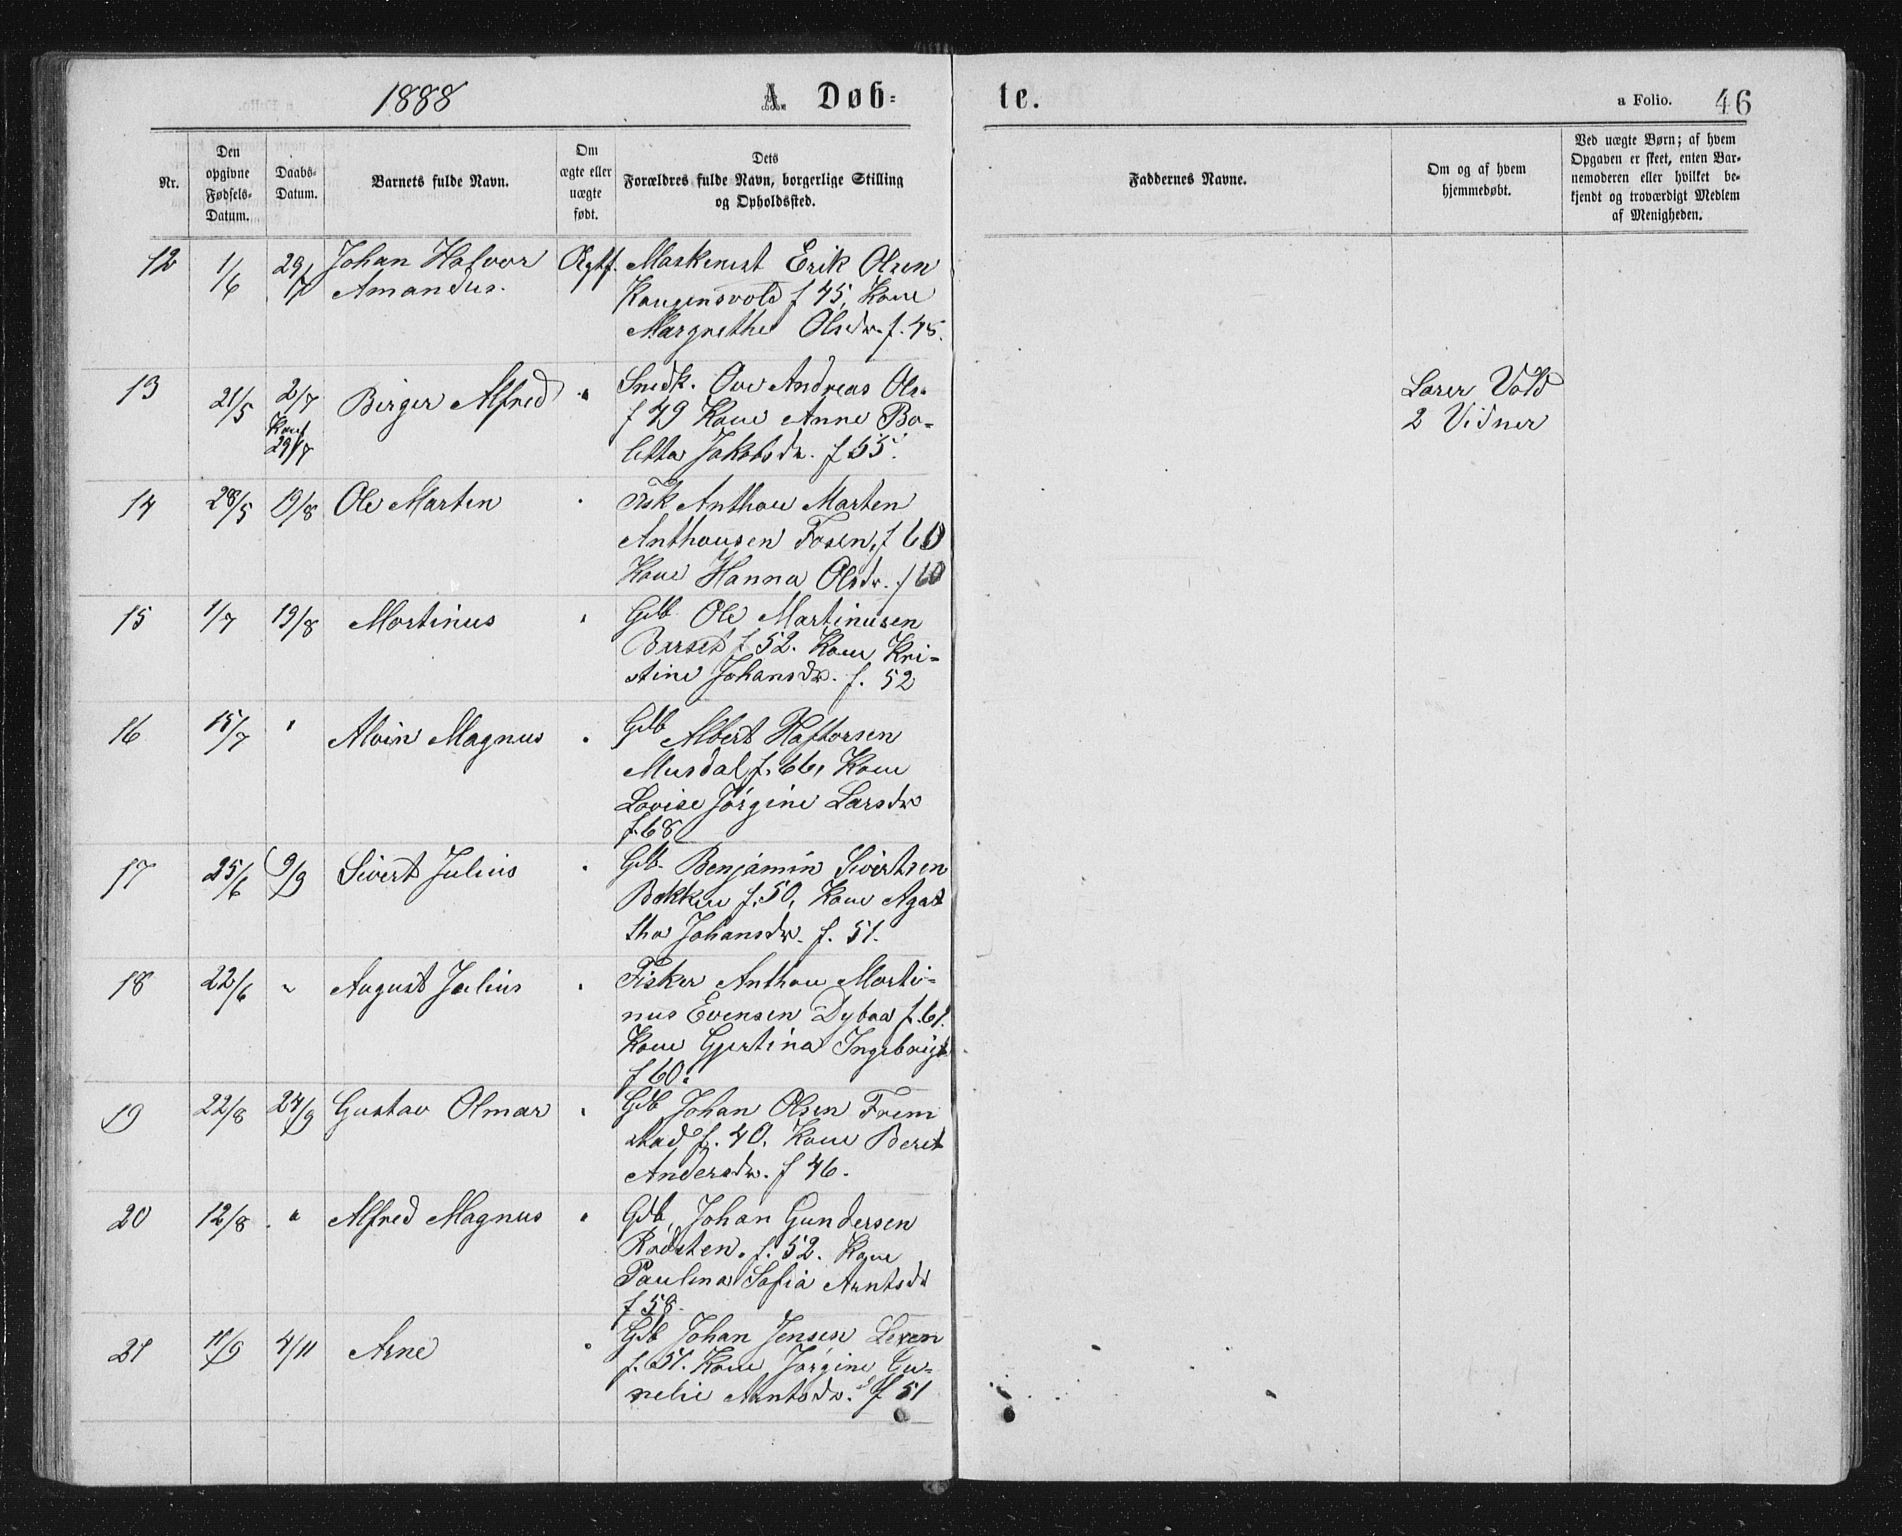 1888 A. Døb= te. a Folio. 46
Nr.
Den opgivne Fødsels-Datum.
Daabs-Datum.
Barnets fulde Navn.
Om ægte eller uægte født.
Dets Forældres fulde Navn, borgerlige Stilling og Opholdssted.
Faddernes Navne.
Om og af hvem hjemmedøbt.
Ved uægte Børn; af hvem Opgaven er skeet, enten Barnemoderen eller hvilket bekjendt og troværdigt Medlem af Menigheden.
12 1/6 29/7 Johan Halvor Ægtf. Maskinist Erik Olsen
Amandus. f 45, Kone
Margrethe Olsdr. f. 45.
13 21/5 2/7 Birger Alfred " Snedk. Ove Andreas Ols. Lærer Vold
Konf 29/7 f 49 Kone Anne Bo- 2 Vidner
letta Jakobsdr. f 55.
14 28/5 19/8 Ole Marten " Fisk Anthon Marten
Anthonsen Fosen, f 60
Kone Hanna Olsdr. f 60
15 1/7 19/8 Mortinus " Gdb. Ole Martinusen
Berset f 52. Kone Kri-
stine Johansdr. f. 52
16 15/7 " Alvin Magnus " Gdb Albert Haftorsen
Musdal f. 66, Kone
Lovise Jørgine Larsdr
f. 68
17 25/6 9/9 Sivert Julius " Gdb. Benjamin Sivertsen
Bekken f. 50, Kone Agat
tha Johansdr. f. 51.
18 22/6 " August Julius " Fisker Anthon Marti-
nus Evensen Dybaa f. 61.
Kone Gjertina Ingebrigt
f 60.
19 22/8 24/9 Gustav Olmar " Gdb Johan Olsen Frem
stad f. 40. Kone Beret
Andersdr. f 46.
20 12/8 " Alfred Magnus " Gdb, Johan Gundersen
f. 52. Kone
Paulina Sofia Arntsdr
f 58.
21 11/9 4/11 Arne " Gdb Johan Jensen Lexen
f. 51. Kone Jørgine Gu-
nelie Arntsdr. f 51